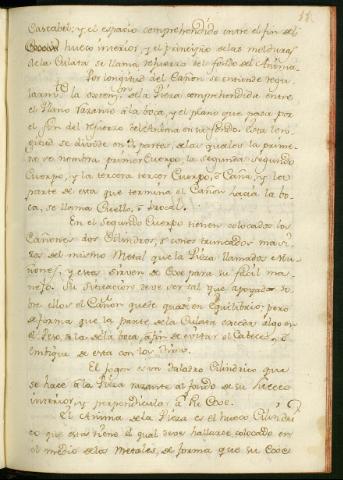 Cascabel; y el espacio comprehendido entre el fin del
hueco interior, y el principio de las molduras
de la Culata se llama refuerzo del fondo del Anima.
Por longitud del Cañon se entiende regu
larm.te la exten.on de la Pieza comprehendida entre
el Plano razante à la boca, y el plano que pasa por
el fin del refuerzo del Anima en su fondo. Esta lon
gitud se divide en 3 partes de las quales la prime
ra se nombra primer Cuerpo, la segunda Segundo
Cuerpo, y la tercera tercer Cuerpo, ò Caña, y la
parte de esta que termina el Cañon hacia la bo
ca, se llama Cuello, ò brocal.
En el Segundo Cuerpo tienen colocados los
Cañones dos Cilindros, ò conos truncados mazi
zos del mismo Metal que la Pieza llamados Mu
ñones, y estos sirven de Exe para su facil ma
nejo. Su situacion debe ser tal que apoyado so
bre ellos el Cañon quede quasi en Equilibrio: pero
de forma que la parte de la Culata exceda algo en
el peso à la de la boca, à fin de evitar el Cabeceo, ò
de esta con los tiros.
El fogon es un taladro Cilindrico que
se hace à la Pieza razante al fondo de su hueco
interior, y perpendicular à su Exe.
El Anima de la Pieza es el hueco Cilindri
co que esta tiene el qual debe hallarse colocado en
el medio de los Metales, de forma que su Exe